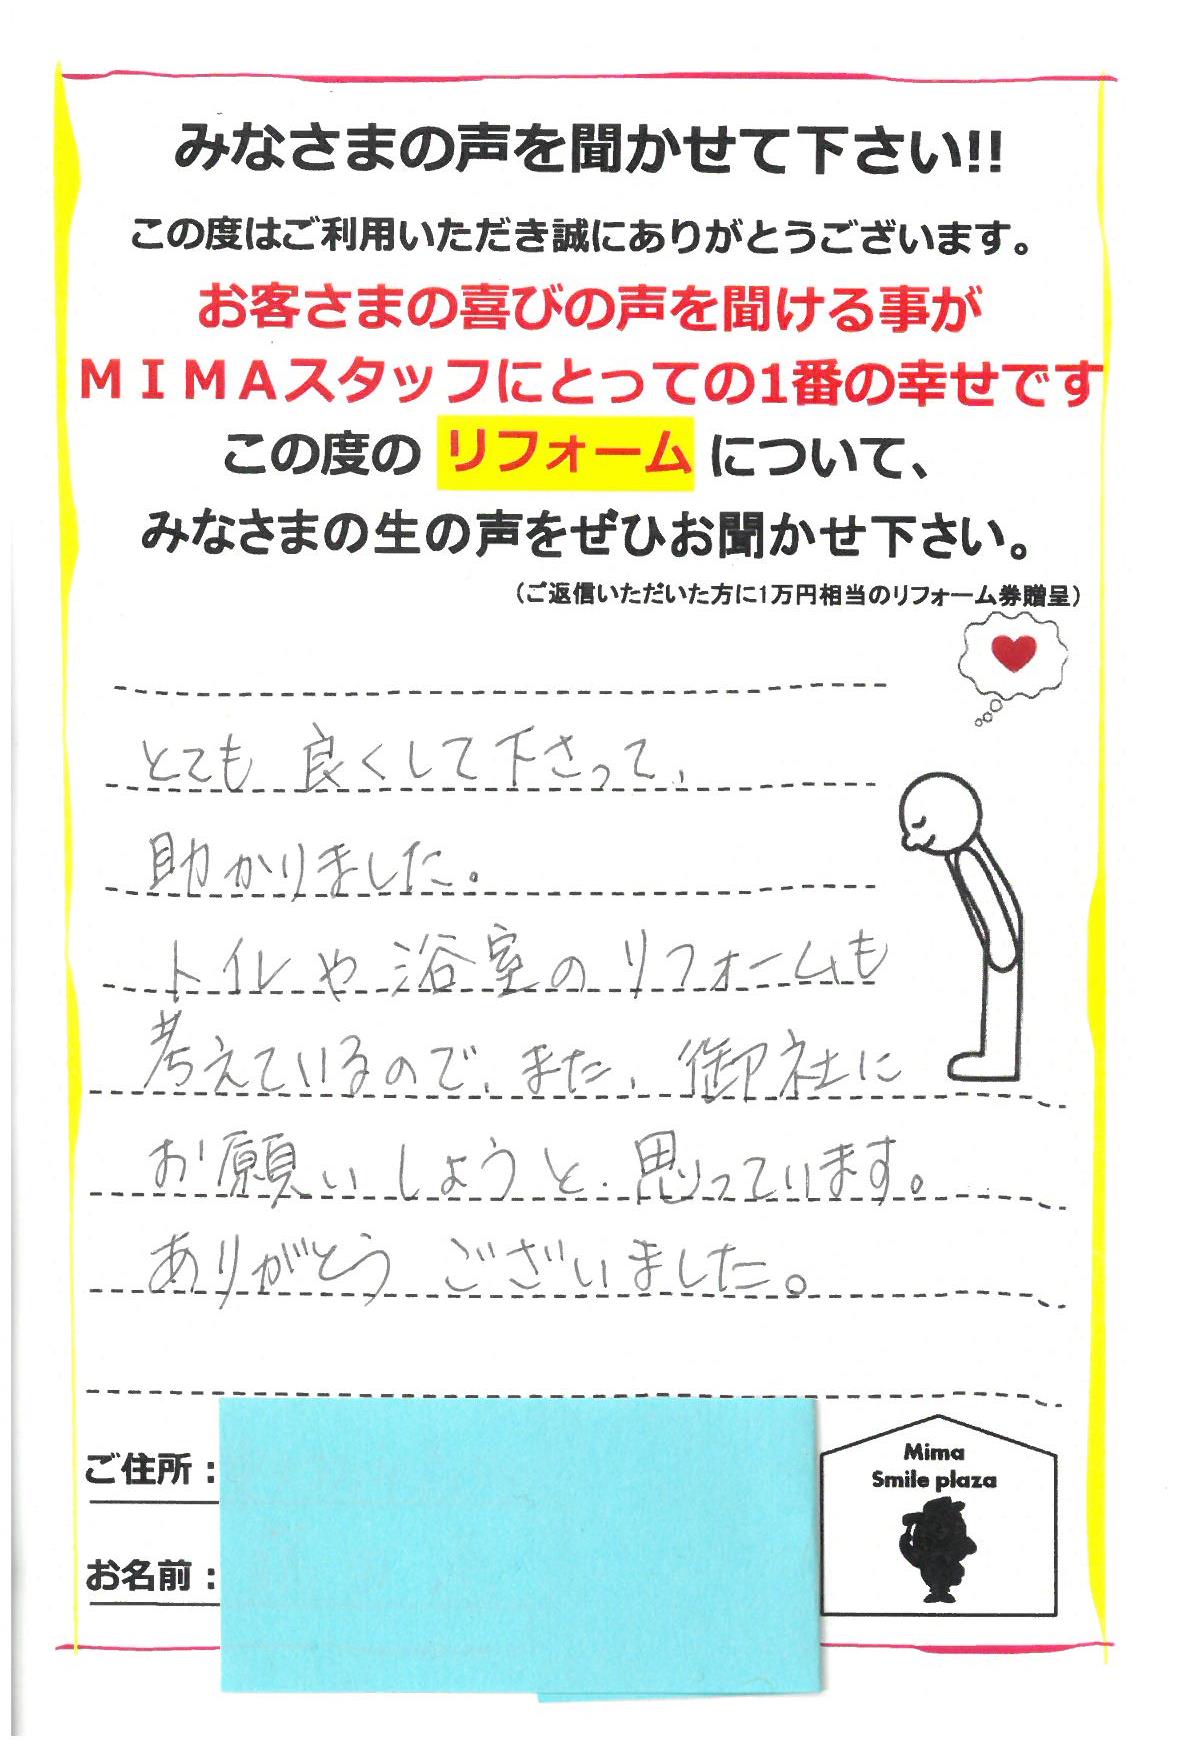 みなさまの声を聞かせて下さい!!
この度はご利用いただき誠にありがとうございます。
お客さまの喜びの声を聞ける事が
ＭＩＭＡスタッフにとっての1番の幸せです
この度の リフォーム について、
みなさまの生の声をぜひお聞かせ下さい。
（ご返信いただいた方に1万円相当のリフォーム券贈呈）
とても 良くして下さって、
助かりました。
トイレや浴室のリフォームも
考えているので、また、御社に
お願いしようと思っています。
ありがとう ございました。
ご住所：
お名前：
Mima
Smile plaza